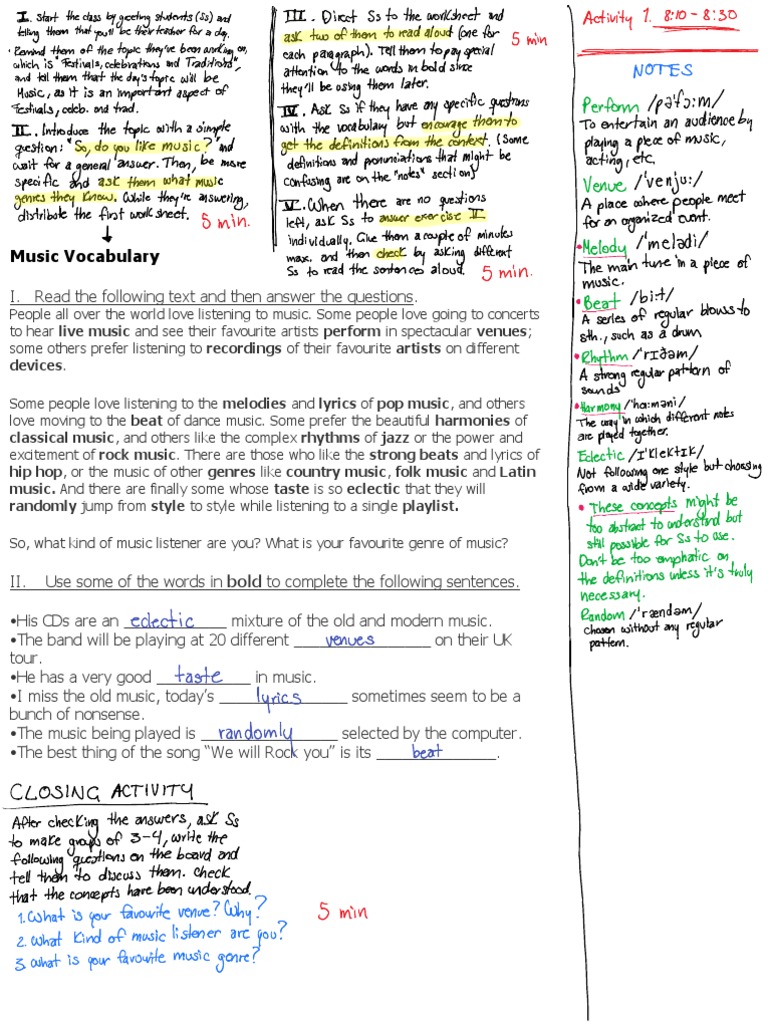 I. Start the class by greeting students (Ss) and
telling them that you'll be their teacher for a day.
· Remind them of the topic they've been working on,
which is "Festivals, celebrations and Traditions",
and tell them that the day's topic will be
Music, as it is an important aspect of
Festivals, celeb. and trad.
II. Introduce the topic with a simple
question: "So, do you like music?" and
wait for a general answer. Then, be more
specific and ask them what music
genres they know. While they're answering,
distribute the first work sheet. 5 min.
III. Direct Ss to the worksheet and
ask two of them to read aloud (one for
each paragraph). Tell them to pay special
attention to the words in bold since
they'll be using them later.
5 min
IV. Ask Ss if they have any specific questions
with the vocabulary but encourage them to
get the definitions from the context. (Some
definitions and pronunciations that might be
confusing are on the "notes" section)
V. When there are no questions
left, ask Ss to answer exercise II
individually. Give them a couple of minutes
max. and then check by asking different
Ss to read the sentences aloud. 5 min.
Music Vocabulary
I. Read the following text and then answer the questions.
People all over the world love listening to music. Some people love going to concerts
to hear live music and see their favourite artists perform in spectacular venues;
some others prefer listening to recordings of their favourite artists on different
devices.
Some people love listening to the melodies and lyrics of pop music, and others
love moving to the beat of dance music. Some prefer the beautiful harmonies of
classical music, and others like the complex rhythms of jazz or the power and
excitement of rock music. There are those who like the strong beats and lyrics of
hip hop, or the music of other genres like country music, folk music and Latin
music. And there are finally some whose taste is so eclectic that they will
randomly jump from style to style while listening to a single playlist.
So, what kind of music listener are you? What is your favourite genre of music?
II. Use some of the words in bold to complete the following sentences.
•His CDs are an eclectic mixture of the old and modern music.
•The band will be playing at 20 different venues on their UK
tour.
•He has a very good taste in music.
•I miss the old music, today's lyrics sometimes seem to be a
bunch of nonsense.
•The music being played is randomly selected by the computer.
•The best thing of the song "We will Rock you" is its beat.
CLOSING ACTIVITY
After checking the answers, ask Ss
to make groups of 3-4, write the
following questions on the board and
tell them to discuss them. Check
that the concepts have been understood.
1. What is your favourite venue? Why?
2. What kind of music listener are you?
3. What is your favourite music genre?
5 min
Activity 1. 8:10 - 8:30
NOTES
Perform /pəˈfɔ:m/
To entertain an audience by
playing a piece of music,
acting, etc.
Venue /ˈvenju:/
A place where people meet
for an organized event.
• Melody /ˈmelədi/
The main tune in a piece of
music.
• Beat /bi:t/
A series of regular blows to
sth., such as a drum
• Rhythm /ˈrɪðəm/
A strong regular pattern of
sounds
• Harmony /ˈhɑ:məni/
The way in which different notes
are played together.
Eclectic /ɪˈklektɪk/
Not following one style but choosing
from a wide variety.
• These concepts might be
too abstract to understand but
still possible for Ss to use.
Don't be too emphatic on
the definitions unless it's truly
necessary.
Random /ˈrændəm/
chosen without any regular
pattern.